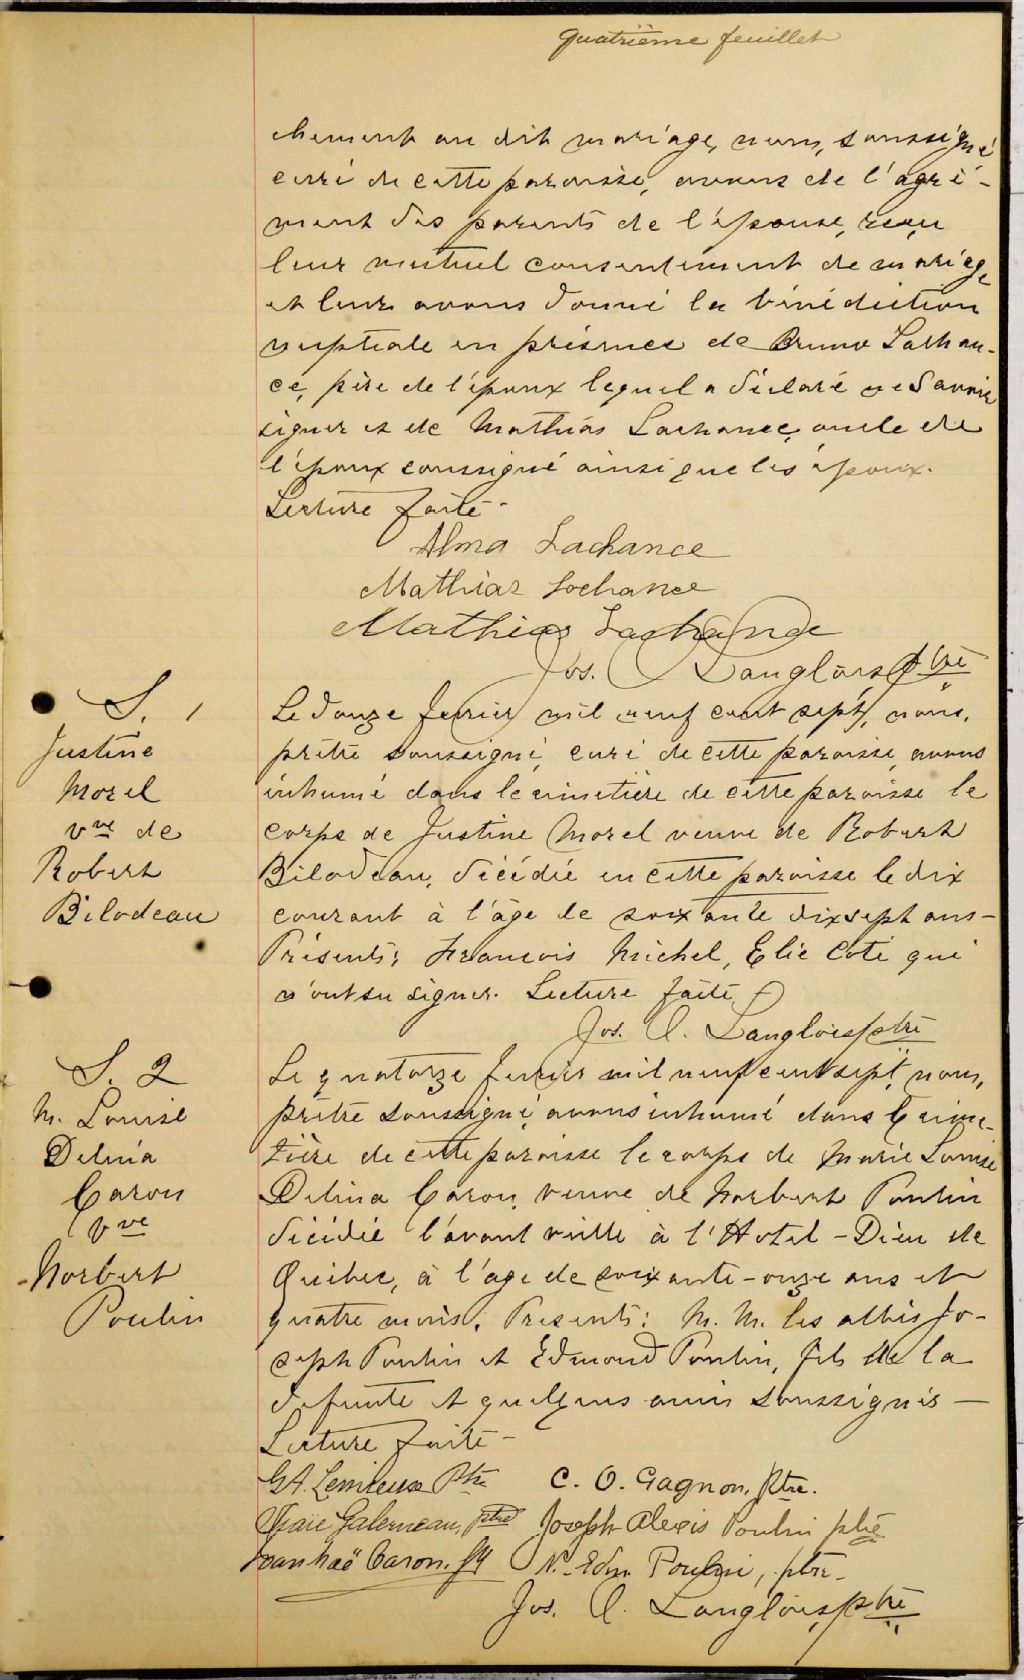 Quatrième feuillet
chement au dit mariage, nous, soussigné
curé de cette paroisse, avons de l'agré-
ment des parents de l'épouse, reçu
leur mutuel consentement de mariage
et leur avons donné la bénédiction
nuptiale en présence de Bruno Lachan-
ce, père de l'époux lequel a déclaré ne savoir
signer et de Mathias Lachance, oncle de
l'époux soussigné ainsi que les époux.
Lecture faite -
Alma Lachance
Mathias Lachance
Mathias Lachance
Jos. O. Langlois ptre
S. 1
Justine
Morel
Vve de
Robert
Bilodeau
Le douze février mil neuf cent sept, nous,
prêtre soussigné, curé de cette paroisse, avons
inhumé dans le cimetière de cette paroisse le
corps de Justine Morel veuve de Robert
Bilodeau, décédée en cette paroisse le dix
courant à l'âge de soixante dix sept ans -
Présents: François Michel, Elie Coté qui
n'ont su signer. Lecture faite
Jos. O. Langlois ptre
S. 2
M. Louise
Delina
Caron
Vve
Norbert
Poulin
Le quatorze février mil neuf cent sept, nous,
prêtre soussigné avons inhumé dans le cime-
tière de cette paroisse le corps de Marie Louise
Delina Caron, veuve de Norbert Poulin
décédée l'avant veille à l'Hotel-Dieu de
Québec, à l'age de soixante-onze ans et
quatre mois. Presents: M. M. les abbés Jo-
seph Poulin et Edmond Poulin, fils de la
défunte et quelques amis soussignés -
Lecture faite -
G A. Lemieux Ptre C. O. Gagnon, Ptre.
Galerneau, ptre Joseph Alexis Poulin ptre
Ivanhoë Caron. N. Edm Poulin, ptre.
Jos. O. Langlois, ptre